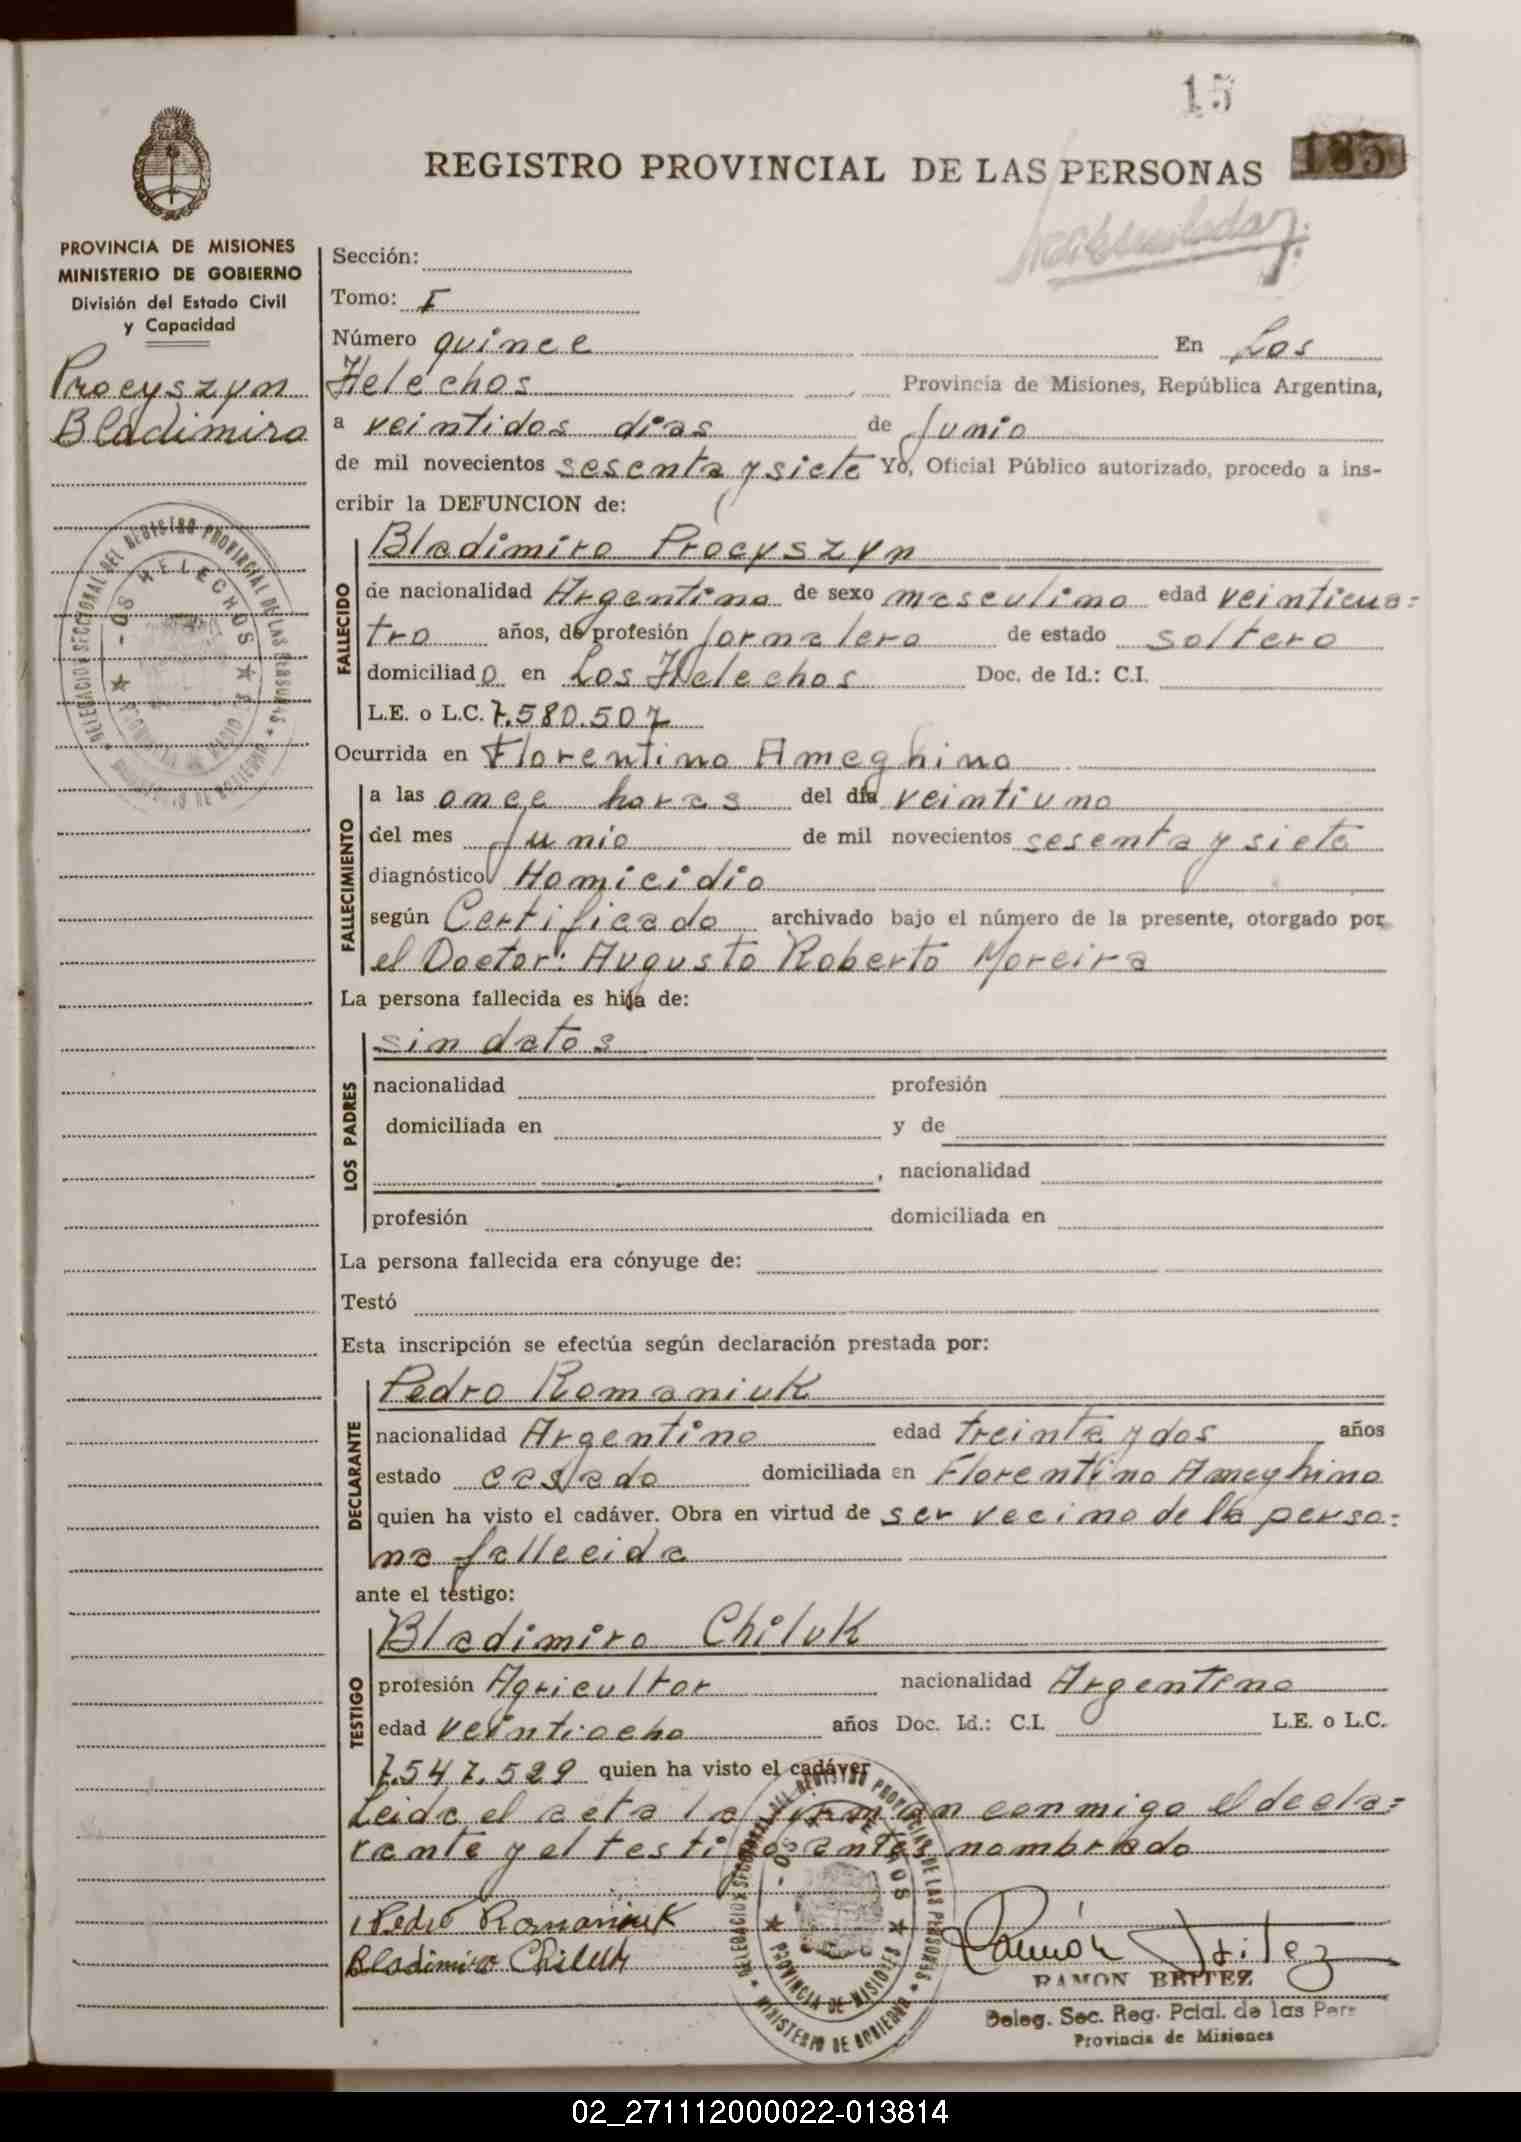 15
REGISTRO PROVINCIAL DE LAS PERSONAS
185
PROVINCIA DE MISIONES
MINISTERIO DE GOBIERNO
División del Estado Civil
y Capacidad
Procyszyn
Bladimiro
DELEGACION SECCIONAL DEL REGISTRO PROVINCIAL DE LAS PERSONAS
LOS HELECHOS
Sección:
Tomo: I
Número quince En Los
Helechos Provincia de Misiones, República Argentina,
a veintidos dias de Junio
de mil novecientos sesenta y siete Yo, Oficial Público autorizado, procedo a ins-
cribir la DEFUNCION de:
FALLECIDO
Bladimiro Procyszyn
de nacionalidad Argentina de sexo masculino edad veinticua=
tro años, de profesión jornalero de estado soltero
domiciliado en Los Helechos Doc. de Id.: C.I.
L.E. o L.C. 7.580.507
Ocurrida en Florentino Ameghino
FALLECIMIENTO
a las once horas del día veintiuno
del mes Junio de mil novecientos sesenta y siete
diagnóstico Homicidio
según Certificado archivado bajo el número de la presente, otorgado por
el Doctor: Augusto Roberto Moreira
La persona fallecida es hija de:
LOS PADRES
sin datos
nacionalidad profesión
domiciliada en y de
, nacionalidad
profesión domiciliada en
La persona fallecida era cónyuge de:
Testó
Esta inscripción se efectúa según declaración prestada por:
DECLARANTE
Pedro Romaniuk
nacionalidad Argentino edad treinta y dos años
estado casado domiciliada en Florentino Ameghino
quien ha visto el cadáver. Obra en virtud de ser vecino de la perso=
na fallecida
ante el testigo:
TESTIGO
Bladimiro Chiluk
profesión Agricultor nacionalidad Argentino
edad veintiocho años Doc. Id.: C.I. L.E. o L.C.
7.547.529 quien ha visto el cadáver
Leida el acta la firman conmigo el decla=
rante y el testigo antes nombrado
DELEGACION SECCIONAL DEL REGISTRO PROVINCIAL DE LAS PERSONAS
LOS HELECHOS
PROVINCIA DE MISIONES
MINISTERIO DE GOBIERNO
Pedro Romaniuk
Bladimiro Chiluk
Ramón Britez
RAMON BRITEZ
Deleg. Sec. Reg. Pcial. de las Pers
Provincia de Misiones
02_271112000022-013814